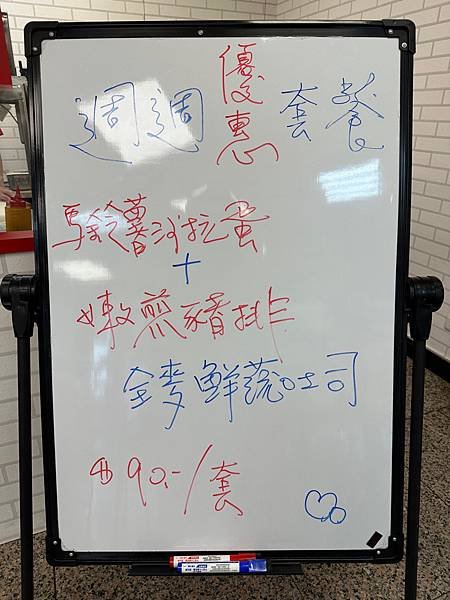 週週優惠套餐
馬鈴薯沙拉蛋
+
嫩煎豬排
全麥鮮蔬吐司
$90.-/套